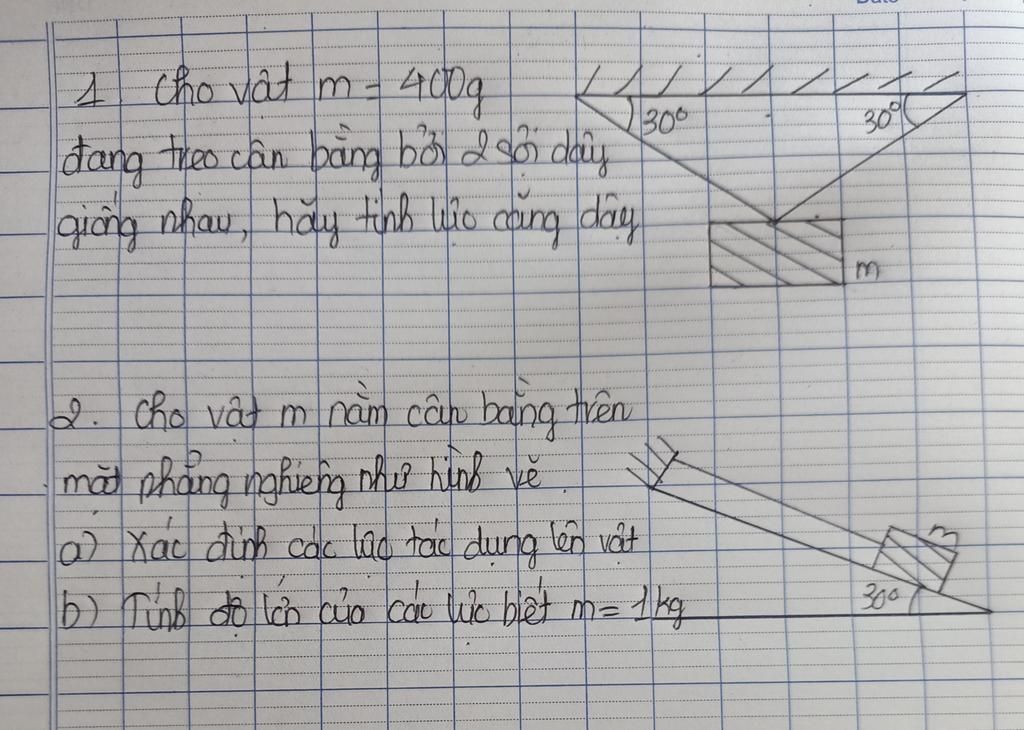 1. Cho vật m = 400g
đang treo cân bằng bởi 2 sợi dây
giống nhau, hãy tính lực căng dây
30° 30°
m
2. Cho vật m nằm cân bằng trên
mặt phẳng nghiêng như hình vẽ.
a) Xác định các lực tác dụng lên vật
m
b) Tính độ lớn của các lực biết m = 1kg
30°